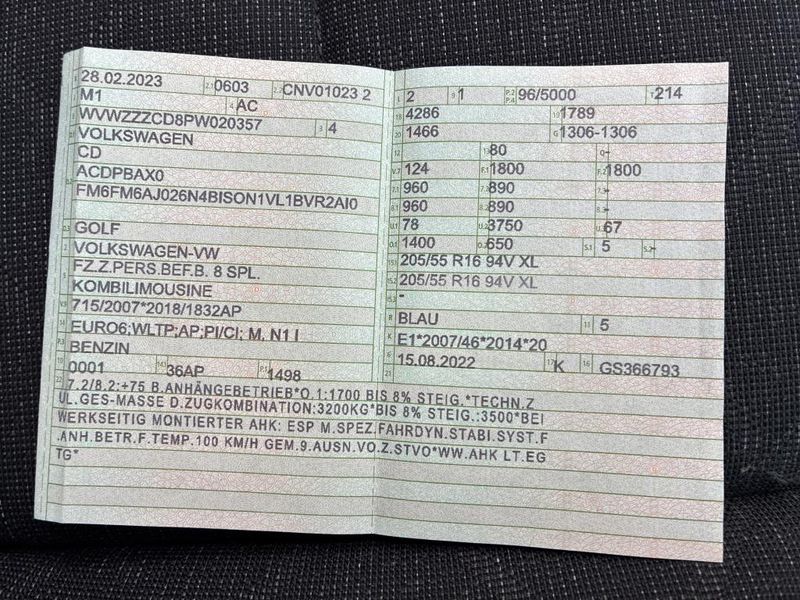 28.02.2023 2.1 0603 2.2 CNV01023 2
M1 4 AC
WVWZZZCD8PW020357 3 4
VOLKSWAGEN
CD
ACDPBAX0
FM6FM6AJ026N4BISON1VL1BVR2AI0
D.3 GOLF
2 VOLKSWAGEN-VW
5 FZ.Z.PERS.BEF.B. 8 SPL.
KOMBILIMOUSINE
V.9 715/2007*2018/1832AP
14 EURO6;WLTP;AP;PI/CI; M, N1 I
P.3 BENZIN
10 0001 14.1 36AP P.1 1498
L 2 9 1 P.2 P.4 96/5000 T 214
18 4286 19 1789
20 1466 G 1306-1306
12 13 80 Q -
V.7 124 F.1 1800 F.2 1800
7.1 960 7.2 890 7.3 -
8.1 960 8.2 890 8.3 -
U.1 78 U.2 3750 U.3 67
O.1 1400 O.2 650 S.1 5 S.2 -
15.1 205/55 R16 94V XL
15.2 205/55 R16 94V XL
15.3 -
R BLAU 11 5
K E1*2007/46*2014*20
6 15.08.2022 17 K 16 GS366793
21
22 7.2/8.2:+75 B.ANHÄNGEBETRIEB*O.1:1700 BIS 8% STEIG.*TECHN.Z
UL.GES-MASSE D.ZUGKOMBINATION:3200KG*BIS 8% STEIG.:3500*BEI
WERKSEITIG MONTIERTER AHK: ESP M.SPEZ.FAHRDYN.STABI.SYST.F
.ANH.BETR.F.TEMP.100 KM/H GEM.9.AUSN.VO.Z.STVO*WW.AHK LT.EG
TG*